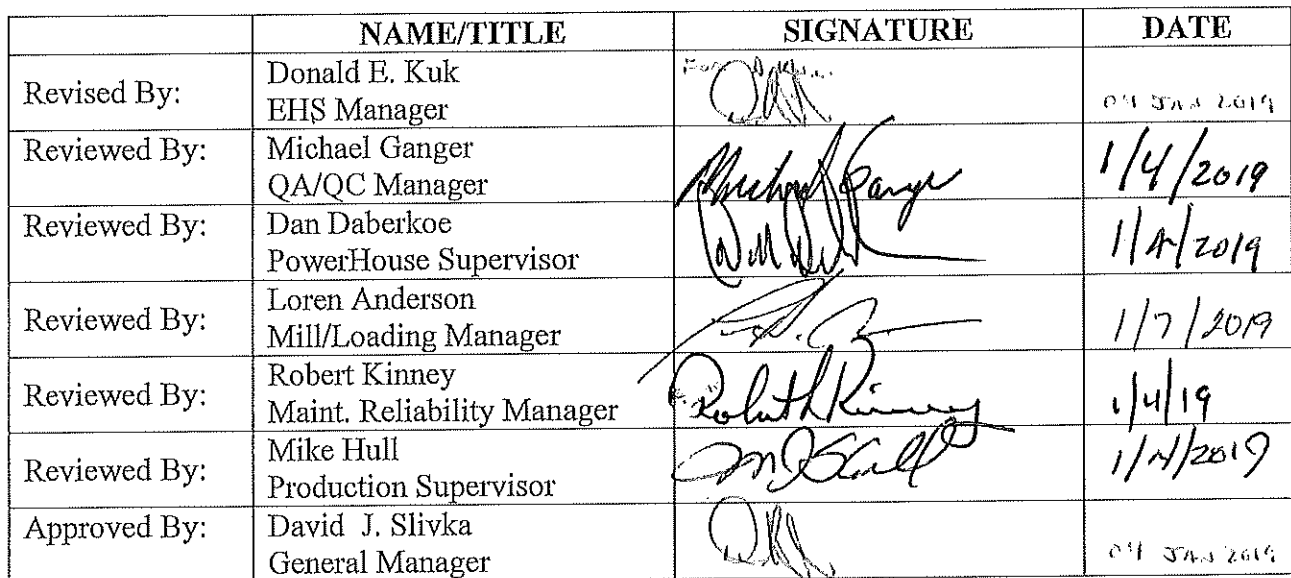 NAME/TITLE SIGNATURE DATE
Revised By: Donald E. Kuk
EHS Manager 04 JAN 2019
Reviewed By: Michael Ganger
QA/QC Manager 1/4/2019
Reviewed By: Dan Daberkoe
PowerHouse Supervisor 1/4/2019
Reviewed By: Loren Anderson
Mill/Loading Manager 1/7/2019
Reviewed By: Robert Kinney Robert L Kinney
Maint. Reliability Manager 1/4/19
Reviewed By: Mike Hull
Production Supervisor 1/4/2019
Approved By: David J. Slivka
General Manager 04 JAN 2019